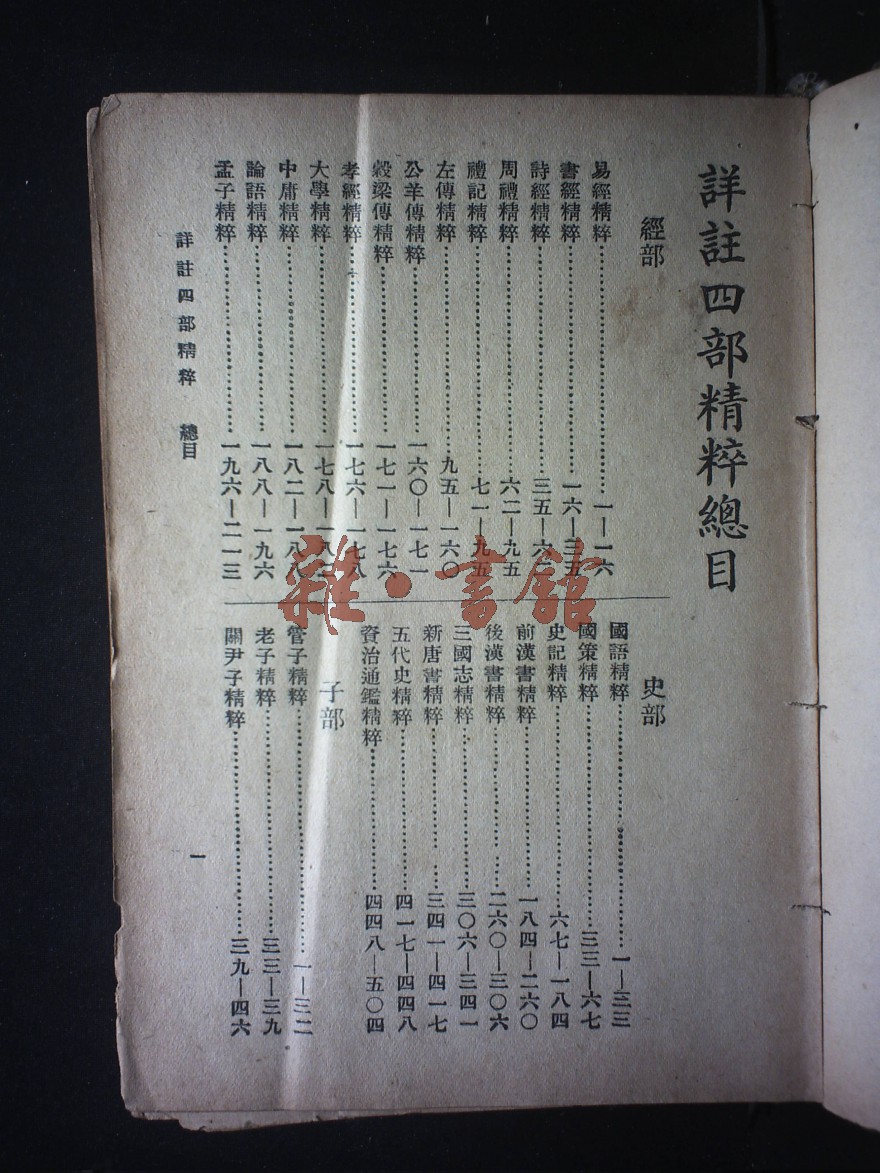 詳註四部精粹總目
經部
易經精粹……一—一六
書經精粹……一六—三五
詩經精粹……三五—六二
周禮精粹……六二—九五
禮記精粹……七一—九五
左傳精粹……九五—一六〇
公羊傳精粹……一六〇—一七一
穀梁傳精粹……一七一—一七六
孝經精粹……一七六—一七八
大學精粹……一七八—一八二
中庸精粹……一八二—一八八
論語精粹……一八八—一九六
孟子精粹……一九六—二一三
史部
國語精粹……一—三三
國策精粹……三三—六七
史記精粹……六七—一八四
前漢書精粹……一八四—二六〇
後漢書精粹……二六〇—三〇六
三國志精粹……三〇六—三四一
新唐書精粹……三四一—四一七
五代史精粹……四一七—四四八
資治通鑑精粹……四四八—五〇四
子部
管子精粹……一—三二
老子精粹……三三—三九
關尹子精粹……三九—四六
詳註四部精粹 總目
一
雜·書館